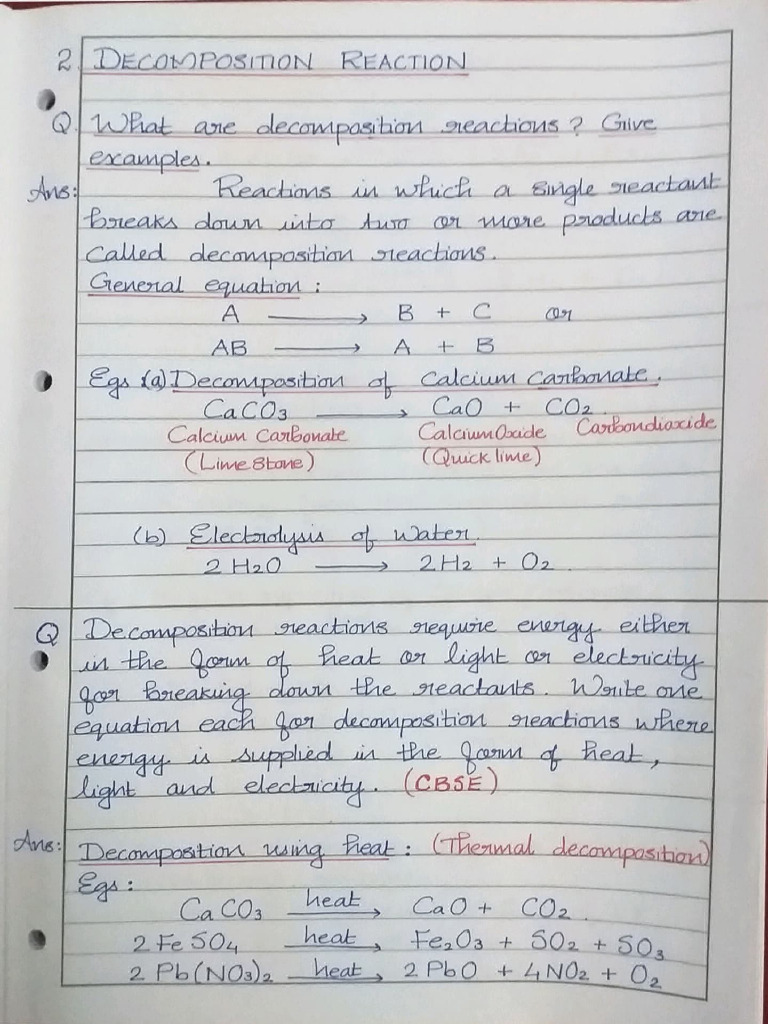 2. DECOMPOSITION REACTION
Q. What are decomposition reactions? Give
examples.
Ans: Reactions in which a single reactant
breaks down into two or more products are
called decomposition reactions.
General equation :
A ⟶ B + C or
AB ⟶ A + B
Egs (a) Decomposition of Calcium Carbonate.
CaCO3 ⟶ CaO + CO2.
Calcium Carbonate Calcium Oxide Carbondioxide
(Lime Stone) (Quick lime)
(b) Electrolysis of Water.
2 H2O ⟶ 2H2 + O2.
Q Decomposition reactions require energy either
in the form of heat or light or electricity
for breaking down the reactants. Write one
equation each for decomposition reactions where
energy is supplied in the form of heat,
light and electricity. (CBSE)
Ans: Decomposition using heat : (Thermal decomposition)
Egs :
CaCO3 heat⟶ CaO + CO2.
2 FeSO4 heat⟶ Fe2O3 + SO2 + SO3
2 Pb(NO3)2 heat⟶ 2 PbO + 4NO2 + O2